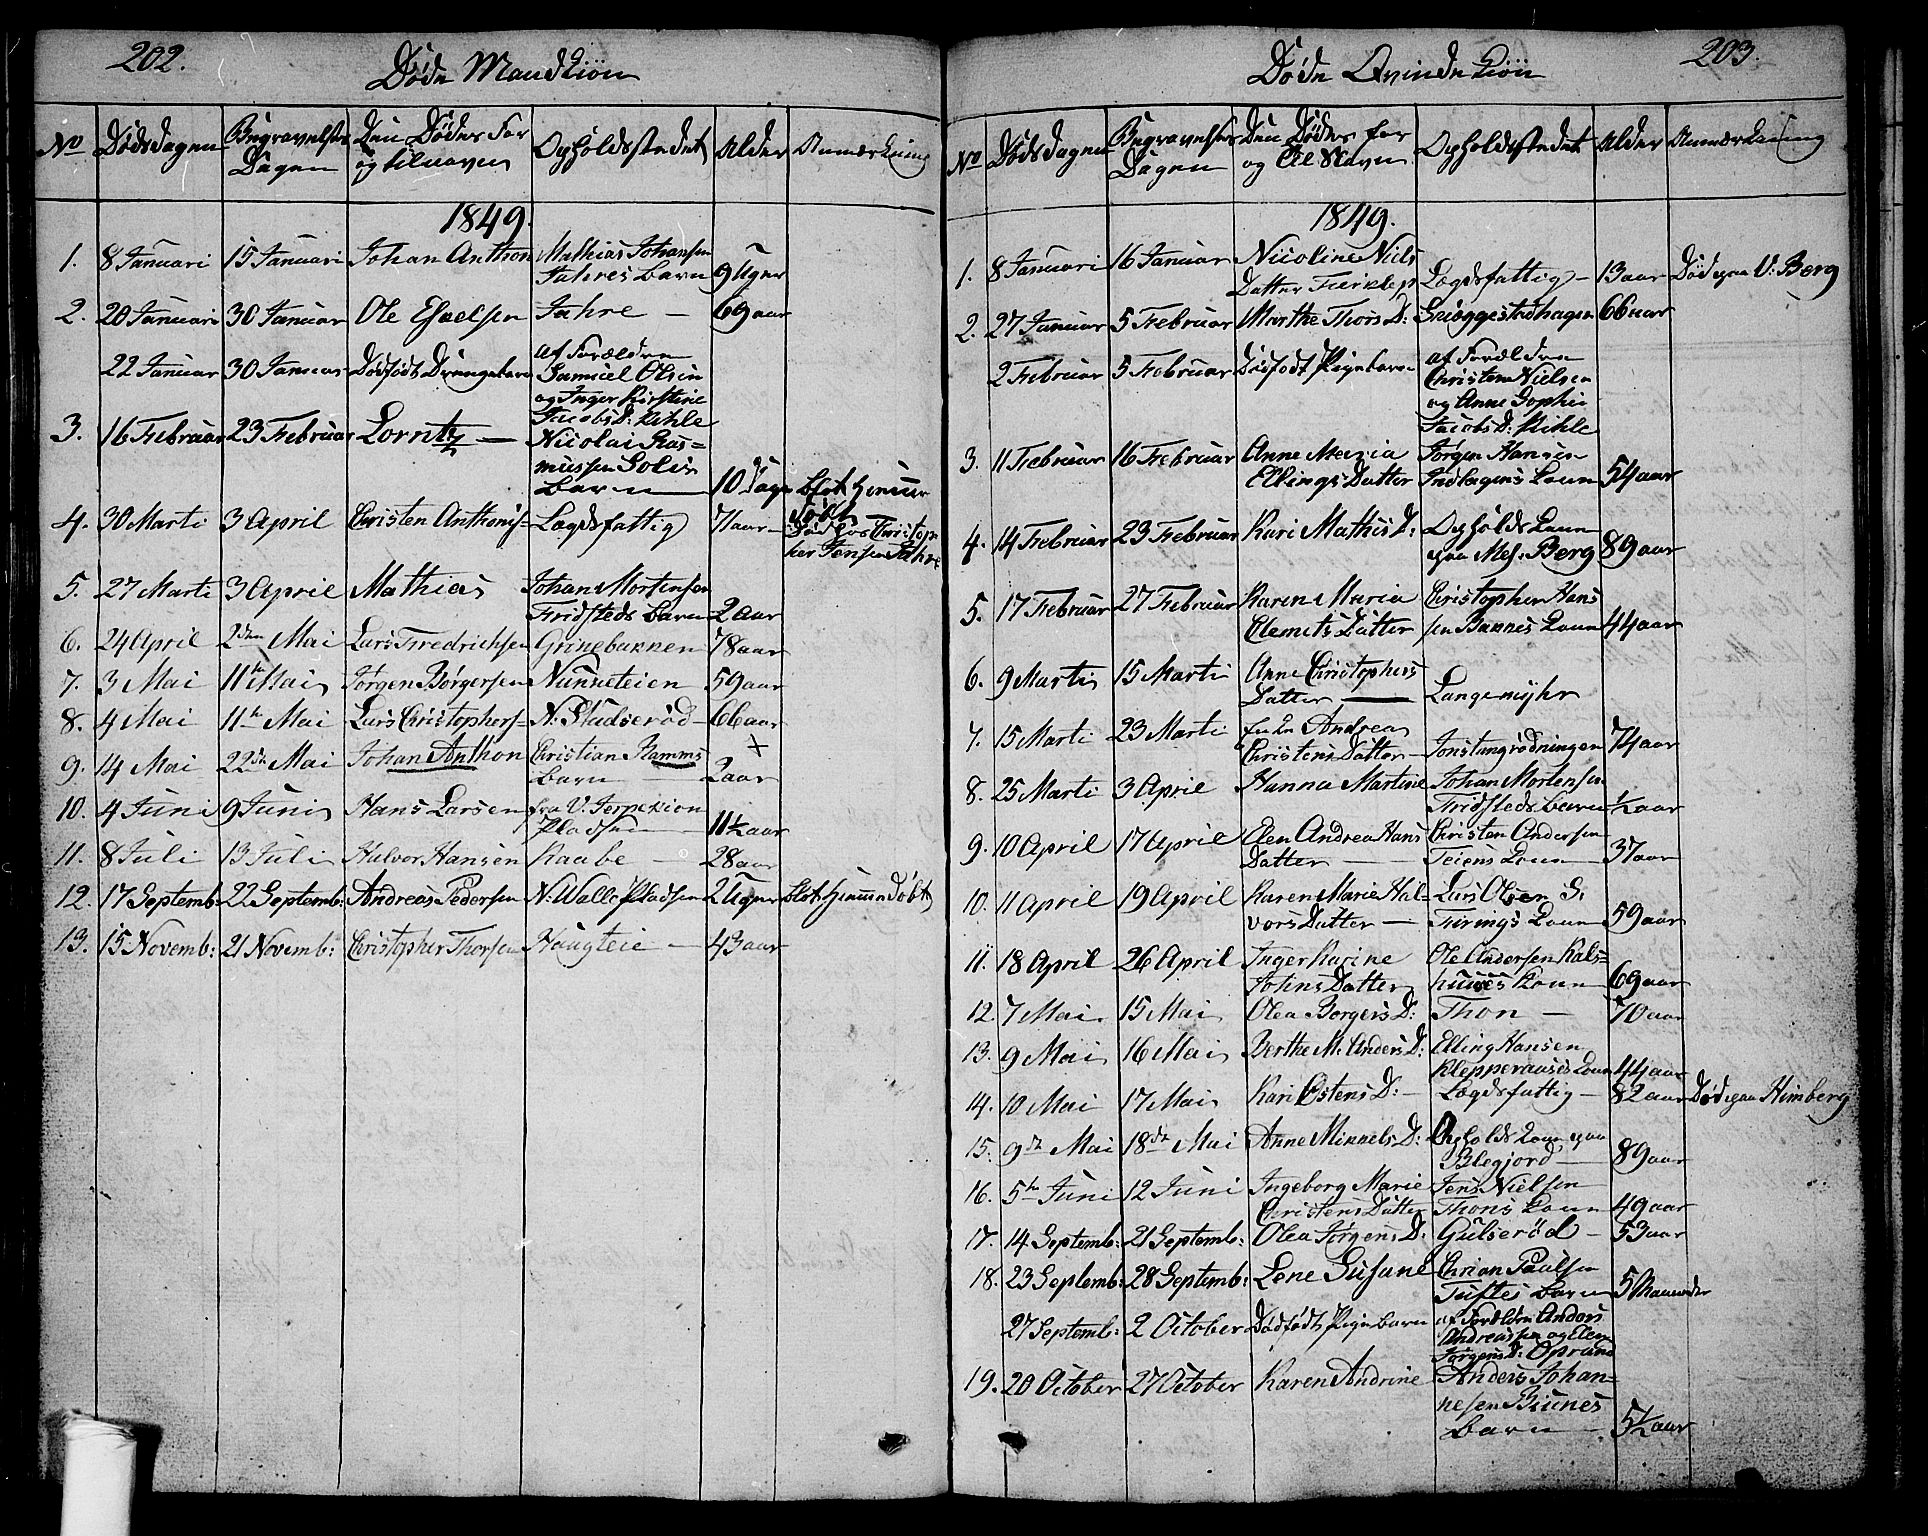 202.
Døde Mandkiøn
No Dødsdagen Begravelses Dagen Den Dødes For og tilnavn Opholdsstedet Alder Anmærkning
1849.
1. 8 Januari 15 Januari Johan Anthon Mathias Johansen
Jahres barn 9 Uger
2. 20 Januari 30 Januar Ole Esselsen Jahre — 69 aar
22 Januar 30 Januar Dødfødt Drængebarn af Forældrene
Samuel Olsen
og Inger Kirstine
Jacobs D: Kihle
3. 16 Februar 23 Februar Lorritz — Nicolai Ras=
mussen Solies
barn 10 Dage blot hiemme
Døbt
4. 30 Marti 3 April Christen Anthonis= Lægdsfattig 71 aar Død hos Christop
her Jensen Jahre
5. 27 Marti 3 April Mathias Johan Mortensen
Fridsteds barn 2 aar
6. 24 April 2den Mai Lars Fredrichsen Grinebakken 78 aar
7. 3 Mai 11te Mai Jørgen Børgersen Nunneteien 59 aar
8. 4 Mai 11te Mai Lars Christophers= N. Studserød 66 aar
9. 14 Mai 22de Mai Johan Anthon Christian Ramms
barn 2 aar
10. 4 Juni 9 Juni Hans Larsen fra V. Jerpekion
Pladsen 11½ aar
11. 8 Juli 13 Juli Halvor Hansen Raabe — 28 aar
12. 17 Septemb: 22 Septemb: Andreas Pedersen N. Valle Pladsen 2 Uger blot hiemme Døbt
13. 15 Novemb: 21 Novemb: Christopher Thorsen Haugteie — 43 aar
203.
Døde Qvindekiøn
No Dødsdagen Begravelses Dagen Den Dødes for og Til Navn Opholdsstedet Alder Anmærkning
1849.
1. 8 Januari 16 Januar Nicoline Niels
Datter Lægdsfattig — 13 aar Død paa V: Berg
2. 27 Januar 5 Februar Marthe Thors D: Snæggestadhagen 66 aar
2 Februar 5 Februar Dødfødt Pigebarn af Forældrene
Christen Nielsen
og Anne Sophie
Jacobs D: Kihle
3. 11 Februar 16 Februar Anne Maria Jørgen Hansen
Ellings Datter Indlagens Kone 54 aar
4. 14 Februar 23 Februar Kari Mathis D: Opholds Kone
paa Mel: Berg 89 aar
5. 17 Februar 27 Februar Karen Maria Christopher Hans
Clemets Datter sen Bannes Kone 44 aar
6. 9 Marti 15 Marti Anne Christophers
Datter — Langemyhr
7. 15 Marti 23 Marti Andrea
Christens Datter Jonstangrødningen 74 aar
8. 25 Marti 3 April Hanna Martine Johan Mortensen
Fridsteds barn ½ aar
9. 10 April 17 April Elen Andrea Hans Christen Andersen
Datter — Teiens Kone 37 aar
10. 11 April 19 April Karen Marie Hal= Lars Olsen S:
vors Datter — Førings Kone 59 aar
11. 18 April 26 April Inger Karine Ole Andersen Kals=
Johns Datter huuses Kone 69 aar
12. 7 Mai 15 Mai Olea Borgers D: Thon — 70 aar
13. 9 Mai 16 Mai Berthe M. Anders D: Elling Hansen
Klepperaases Kone 44 aar
14. 10 Mai 17 Mai Kari Østens D: Lægdsfattig — 82 aar Død paa Himberg
15. 9de Mai 18de Mai Anne Mikkels D: Opholds Kone paa
Blegjord — 89 aar
16. 5te Juni 12 Juni Ingeborg Marie Jens Nielsen
Christens Datter Thons Kone 49 aar
17. 14 Septemb: 21 Septemb: Olea Jørgens D: Gulserød — 53 aar
18. 23 Septemb: 28 Septemb: Lene Susane Chrian Paulsen
Tuftes barn 5 Maaneder
27 Septemb: 2 October Dødfødt Pige barn af Forældre Anders
Andreassen og Elen
Jørgens D: Oprund
19. 20 October 27 October Karen Andrine Anders Johan=
nesen Biunes
barn — 5½ aar